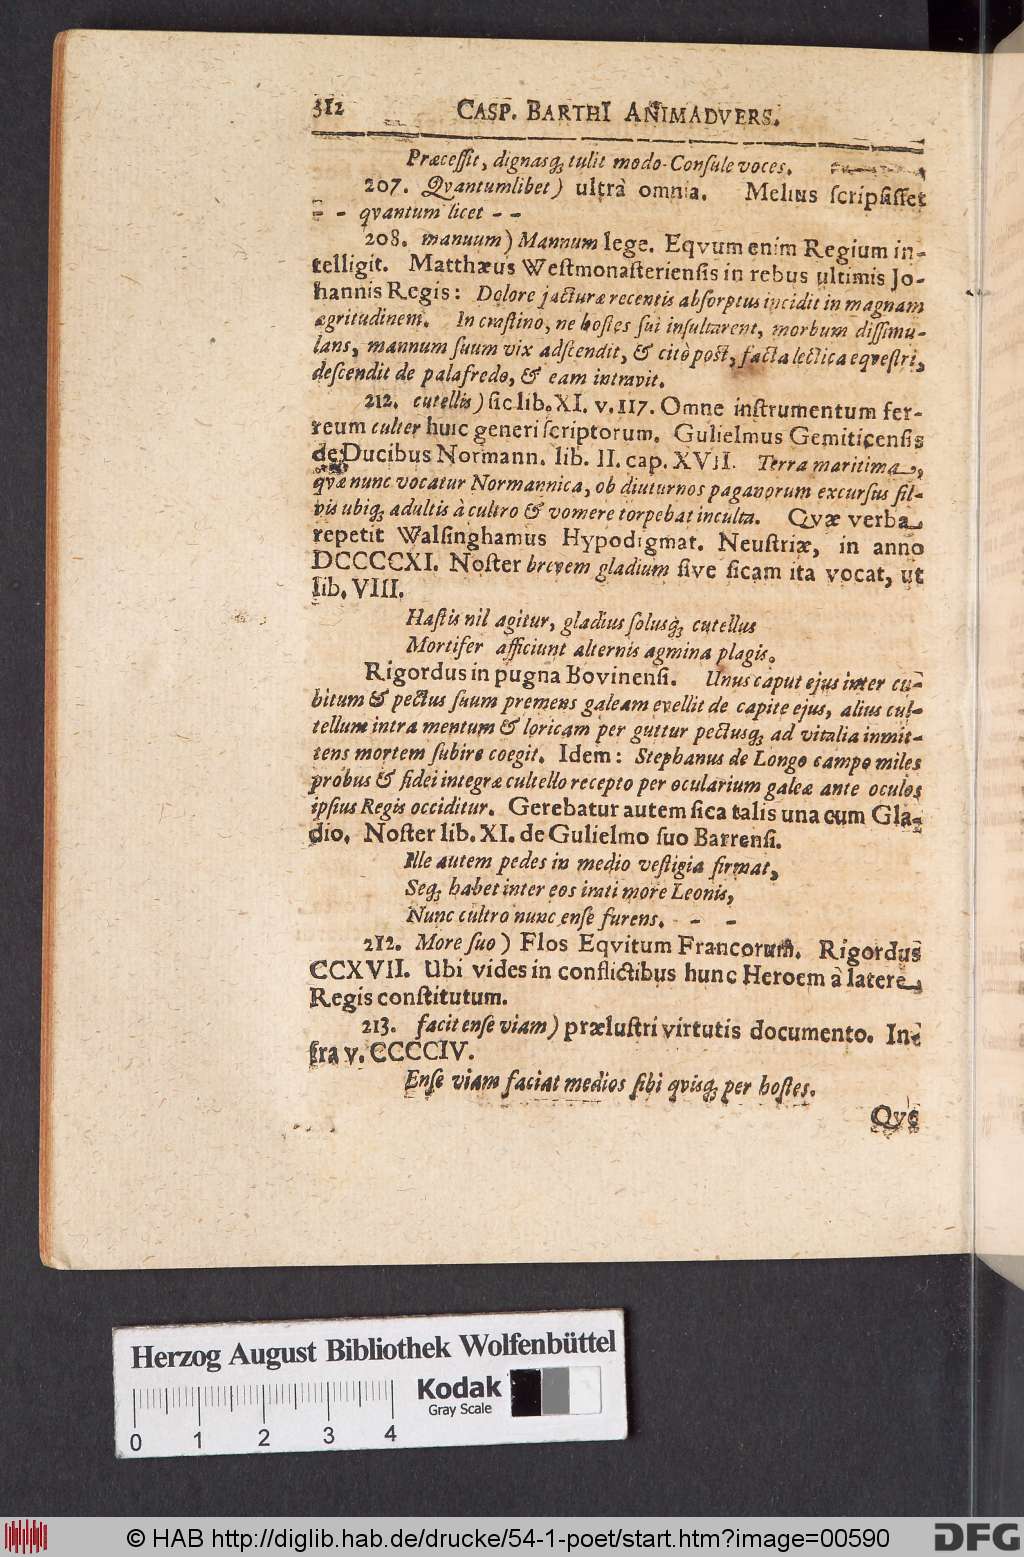 312 CASP. BARTHI ANIMADVERS.
Præceſſit, dignasq́; tulit modo Conſule voces.
207. Qvantumlibet) ultrà omnia. Melius ſcripſiſſet
- - qvantum licet - -
208. manuum) Mannum lege. Eqvum enim Regium in-
telligit. Matthæus Weſtmonaſterienſis in rebus ultimis Jo-
hannis Regis: Dolore jacturæ recentis abſorptus incidit in magnam
ægritudinem. In craſtino, ne hoſtes ſui inſultarent, morbum diſſimu-
lans, mannum ſuum vix adſcendit, & citò poſt, facta lectica eqveſtri,
deſcendit de palafredo, & eam intravit.
212. cutellis) ſic lib. XI. v. 117. Omne inſtrumentum fer-
reum culter huic generi ſcriptorum. Gulielmus Gemiticenſis
de Ducibus Normann. lib. II. cap. XVII. Terra maritima,
qvæ nunc vocatur Normannica, ob diuturnos paganorum excurſus ſil-
vis ubiq; adultis à cultro & vomere torpebat inculta. Qvæ verba
repetit Walſinghamus Hypodigmat. Neuſtriæ, in anno
DCCCCXI. Noſter brevem gladium ſive ſicam ita vocat, ut
lib. VIII.
Haſtis nil agitur, gladius ſolusq́; cutellus
Mortifer afficiunt alternis agmina plagis.
Rigordus in pugna Bovinenſi. Unus caput ejus inter cu-
bitum & pectus ſuum premens galeam evellit de capite ejus, alius cul-
tellum intra mentum & loricam per guttur pectusq́; ad vitalia inmit-
tens mortem ſubire coegit. Idem: Stephanus de Longo campo miles
probus & fidei integræ cultello recepto per ocularium galeæ ante oculos
ipſius Regis occiditur. Gerebatur autem ſica talis una cum Gla-
dio. Noſter lib. XI. de Gulielmo ſuo Barrenſi.
Ille autem pedes in medio veſtigia firmat,
Seq́; habet inter eos irati more Leonis,
Nunc cultro nunc enſe furens. - -
212. More ſuo) Flos Eqvitum Francorum. Rigordus
CCXVII. Ubi vides in conflictibus hunc Heroem à latere
Regis conſtitutum.
213. facit enſe viam) præluſtri virtutis documento. In-
fra v. CCCCIV.
Enſe viam faciat medios ſibi qvisq́; per hoſtes.
Qve
Herzog August Bibliothek Wolfenbüttel
Kodak
Gray Scale
0 1 2 3 4
© HAB http://diglib.hab.de/drucke/54-1-poet/start.htm?image=00590
DFG